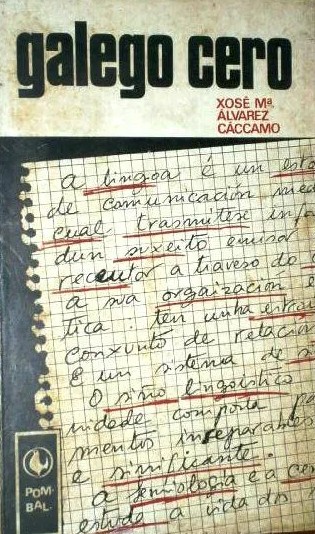 galego cero
XOSÉ Mª
ÁLVAREZ
CÁCCAMO
a lingoa é un
de comunicación
cual trasmítese
dun suxeito emisor
receutor a traveso do
a sua orgaización
tica: ten unha
conxunto de
E un sistema de
O siño lingüístico
nidade composta
mentos inseparabes
e sinificante.
a semioloxía é a
estuda a vida dos
POM-
BAL